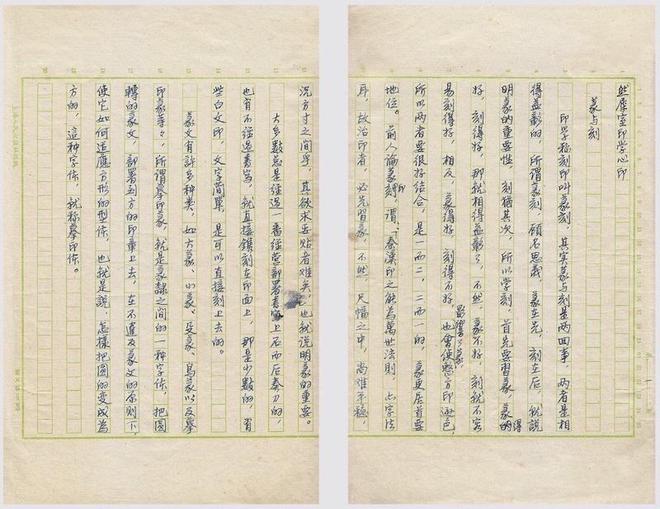 然犀室印学心印
篆与刻
印学称刻印叫篆刻，其实篆与刻是两回事，两者是相
得益彰的，所谓篆刻，顾名思义，篆在先，刻在后，就说
明篆的重要性，刻犹其次，所以学刻，首先要习篆，篆得
好，刻得好，那就相得益彰了，不然，篆不好，刻就不容
易刻得好，相反，篆得好，刻得不好，也会使整方印逊色，
影响了篆，
所以两者要很好结合，是一而二，二而一的，篆更居首要
地位。前人论篆刻印，谓：「秦汉印之能为万世法则，六字法
耳，故治印者，必先习篆，不然，尺幅之中，尚难平稳，
况方寸之间乎，其欲求安贴者难矣，也就说明篆的重要。
大多数总是经过一番经营部署书写上石而后奏刀的，
也有不经过书写，就直接镌刻在印面上，那是少数的，有
些白文印，文字简单，是可以直接刻上去的。
篆文有许多种类，如大篆、小篆、叐篆、鸟篆以及摹
印篆等々，所谓摹印篆，就是篆隶之间的一种字体，把圆
转的篆文，部署到方的印章上去，在不违反篆文的原则下，
使它如何适应方形的型体，也就是说，怎样把圆的变成为
方的，这种字体，就称摹印体。